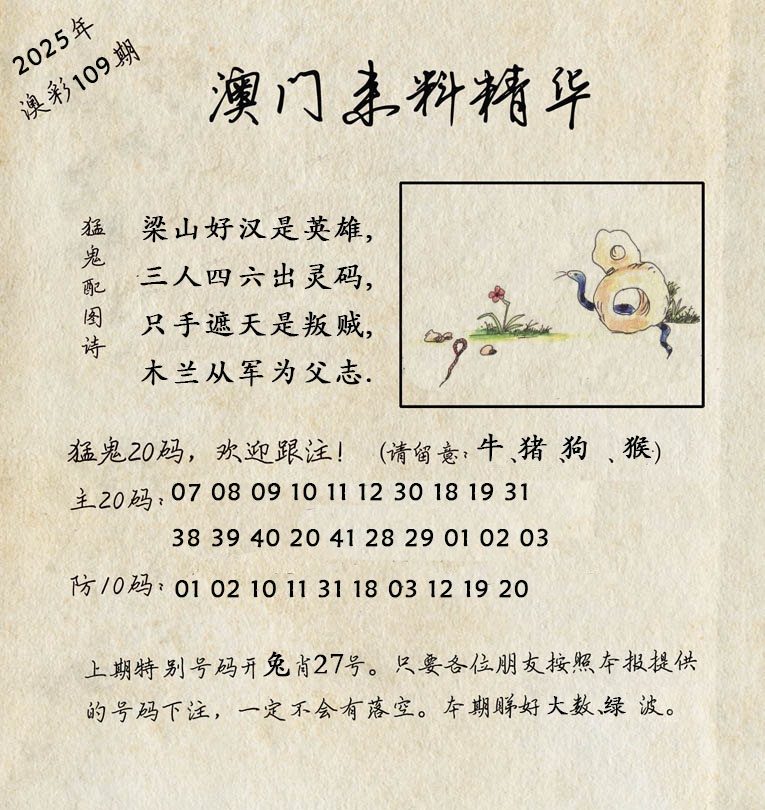 2025年
澳彩109期
澳门来料精华
猛鬼配图诗
梁山好汉是英雄,
三人四六出灵码,
只手遮天是叛贼,
木兰从军为父志.
猛鬼20码，欢迎跟注！（请留意：牛、猪、狗、猴）
主20码：07 08 09 10 11 12 30 18 19 31
38 39 40 20 41 28 29 01 02 03
防10码：01 02 10 11 31 18 03 12 19 20
上期特别号码开兔肖27号。只要各位朋友按照本报提供
的号码下注，一定不会有落空。本期睇好大数、绿 波。